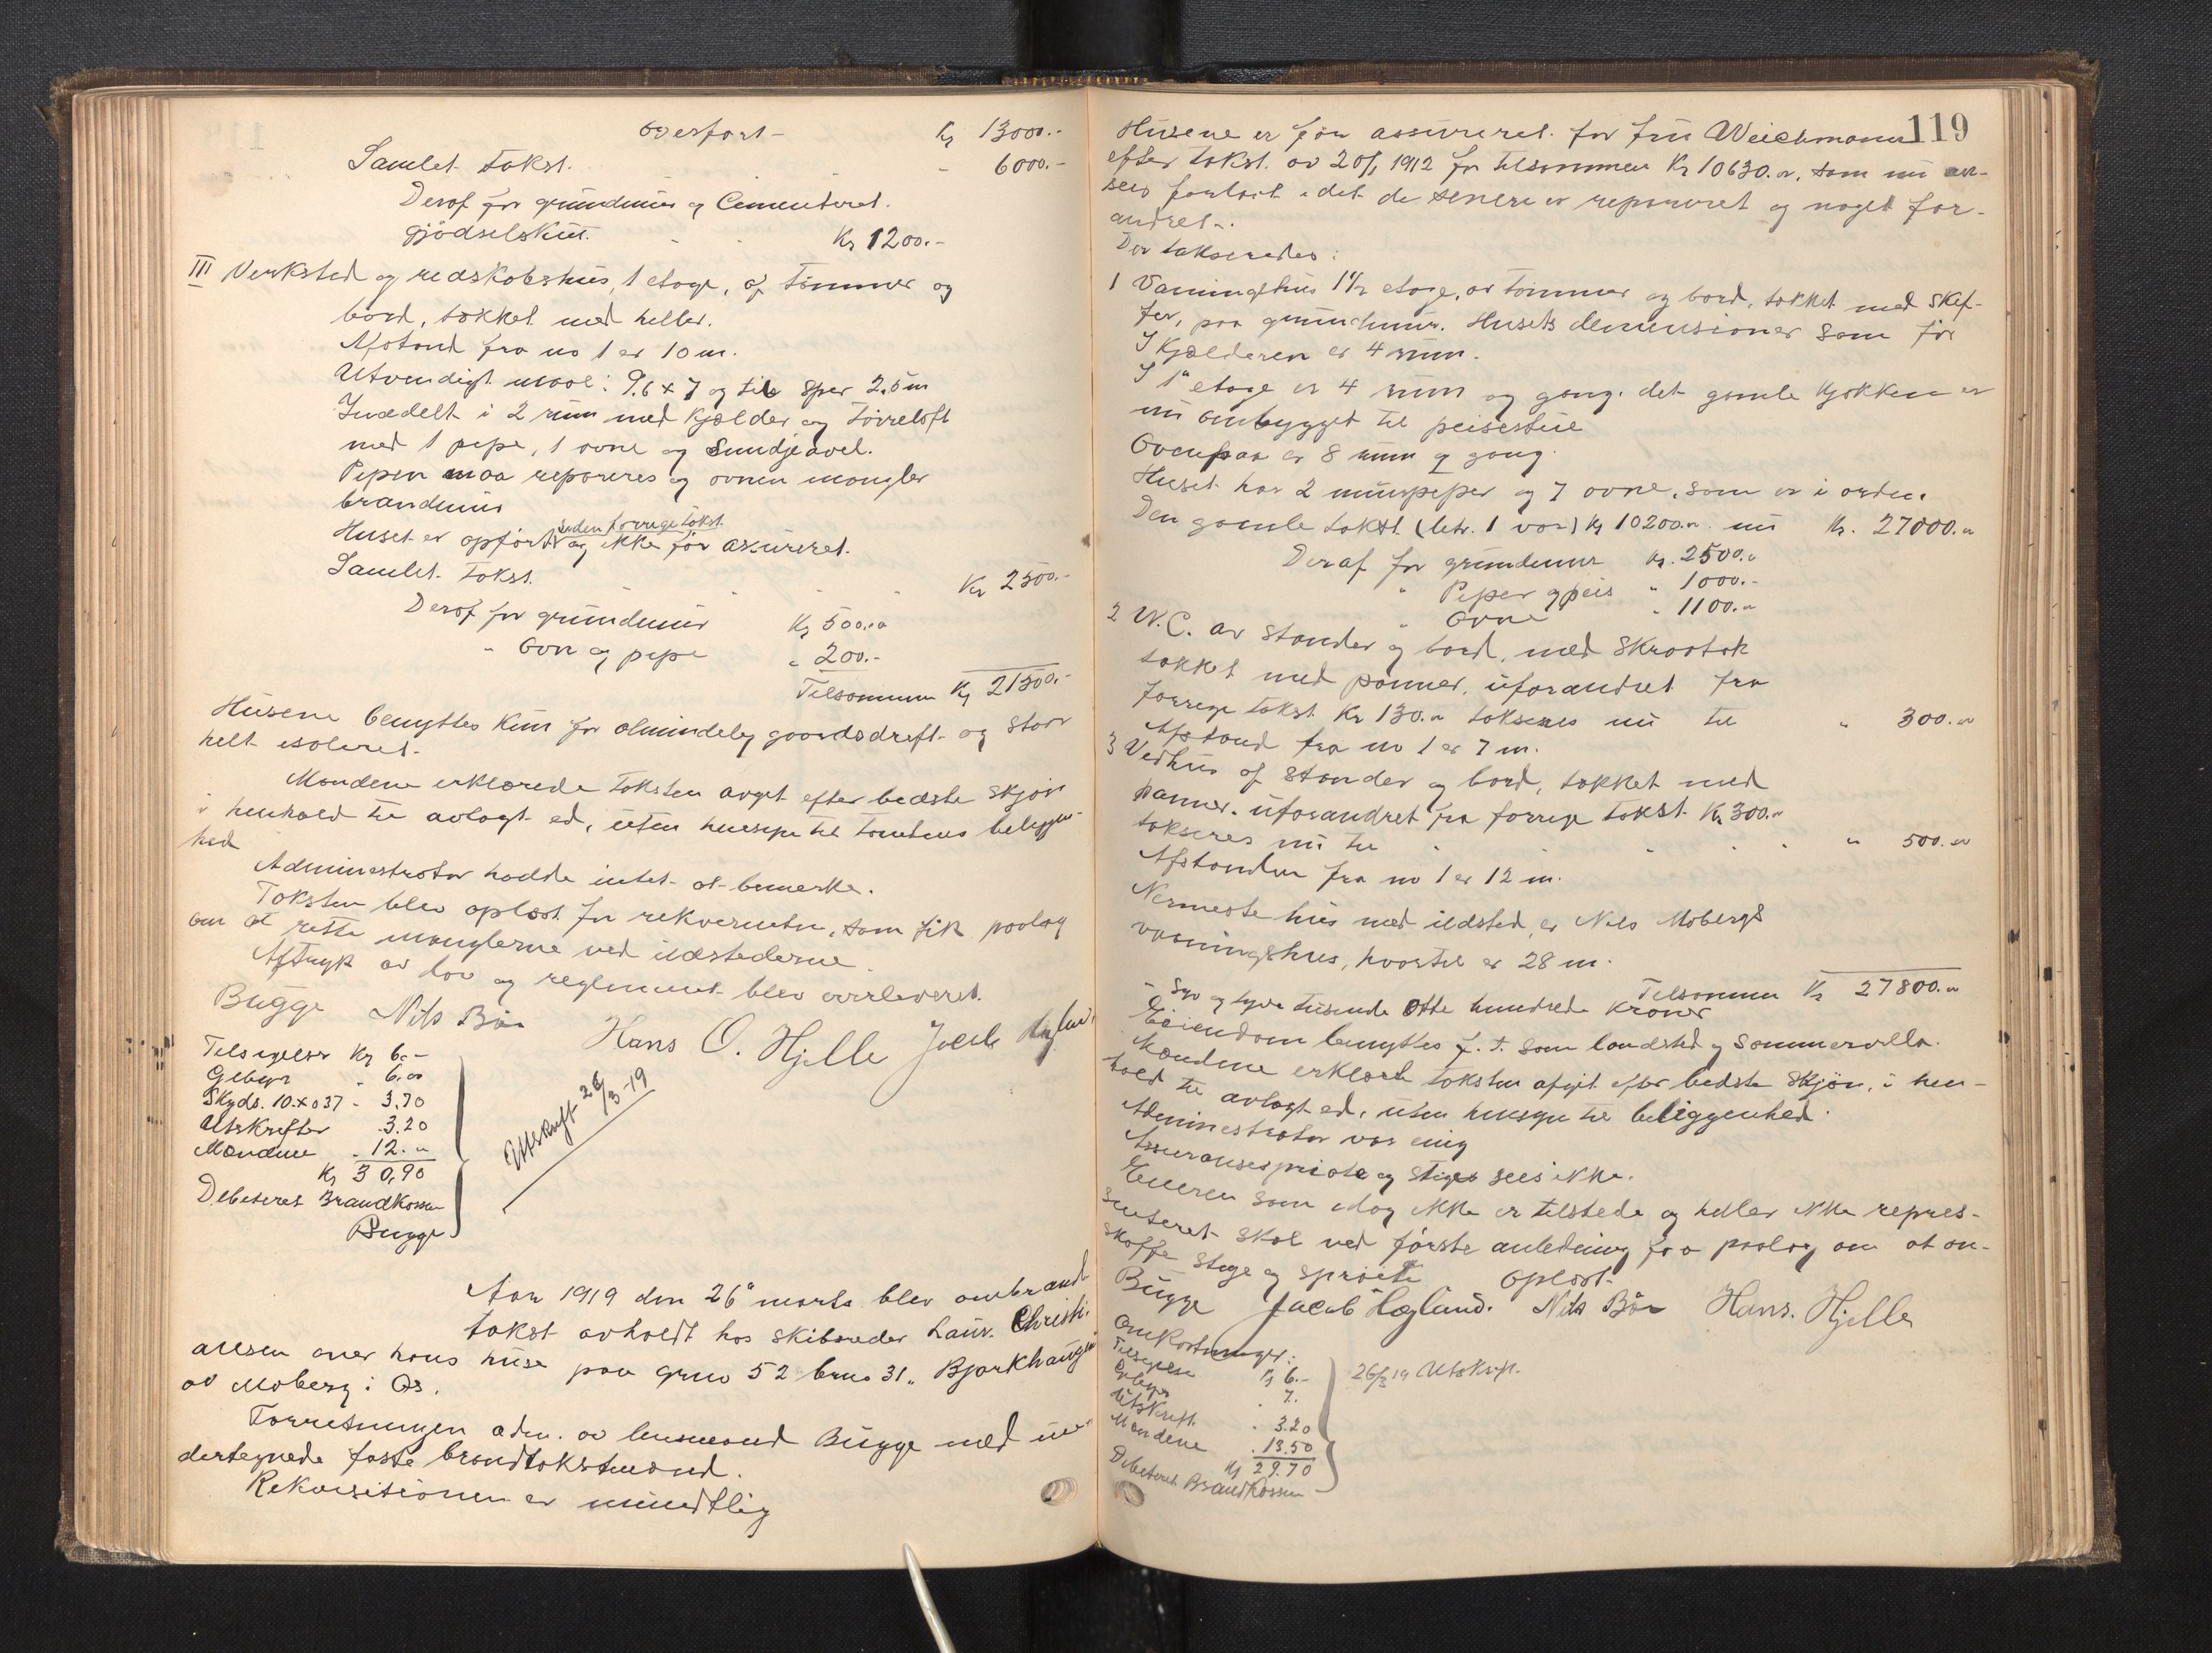 overført - Kr 13000.-
Samlet takst. - 6000.-
Deraf for grundmur og Cementeret.
gjødselskur. - - Kr 1200.-
III Verksted og redskabshus, 1 etage, af tømmer og
bord, tækket med heller.
Afstand fra no 1 er 10 m.
Utvendigt maal: 9.6 x 7 og til sper 2,5 m
Indedelt i 2 rum med kjælder og tørreloft
med 1 pipe, 1 ovne og
Pipen maa repareres og ovnen mangler
brandmur
Huset er opført siden forrige takst og ikke før assureret.
Samlet takst. Kr 2500.-
Deraf for grundmur Kr 500.00
" Ovn og pipe " 200.-
Tilsammen Kr 21500.-
Husene benyttes kun for almindelig gaardsdrift og staar
helt isoleret.
Mændene erklærede taksten avgit efter bedste skjøn
i henhold til avlagt ed, uten hensyn til tomtens beliggen-
hed
Administrator hadde intet at bemerke.
Taksten blev oplæst for rekvirenten, som fik paalæg
om at rette manglerne ved ildstederne.
Aftryk av lov og reglement blev overleveret.
Bugge Nils Bøe Hans O. Hjelle Jacob Hægland
Tilsigelser Kr 6.-
Gebyr " 6.00
Skyds. 10 x 0 37 - 3,70
Utskrifter .3.20
Mændene . 12.00
Kr 30,90
Debiteret Brandkassen
Bugge
Utskrift 26/3-19
Aar 1919 den 26de marts blev ombrand-
takst avholdt hos skibsreder Laur. Christi-
ansen over hans huse paa gno 52 bno 31 „ Bjørkhaugen
av Moberg i Os.
Forretningen adm. av lensmand Bugge med un-
dertegnede faste brandtakstmænd.
Rekvisitionen er mundtlig
119
Husene er før assureret for fru Weichmann
efter takst av 20/1 1912 for tilsammen Kr 10630.00, som nu an-
sees forlavt idet de senere er reparert og noget for-
andret.
Der takseredes:
1 Vaaningshus 1 1/2 etage, av tømmer og bord, tækket med skif-
fer, paa grundmur. Husets dimensioner som før
I kjælderen er 4 rum.
I 1ste etage er 4 rum og gang. det gamle kjøkken er
nu ombygget til peisestue
Ovenpaa er 8 rum og gang.
Huset har 2 murpiper og 7 ovne, som er i orden.
Den gamle takst (litr. 1 var) Kr 10200.00 nu Kr. 27000.00
Deraf for grundmur Kr. 2500.00
" Piper og peis " 1000.-
" Ovne " 1100.00
2 W.C. av stænder og bord, med skraatak
tækket med panner, uforandret fra
forrige takst Kr 130.00 takseres nu til " 300.00
Afstand fra no 1 er 7 m.
3 Vedhus af stænder og bord, tækket med
panner. uforandret fra forrige takst Kr 300.00
takseres nu til " 500.00
Afstanden fra no 1 er 12 m.
Nærmeste hus med ildsted, er Nils Mobergs
vaaningshus, hvortil er 28 m.
Tilsammen Kr 27800.00
- Syv og tyve tusinde otte hundrede kroner
Eiendom benyttes f. t. som landsted og sommervilla.
Mændene erklærte taksten afgit efter bedste skjøn, i hen-
hold til avlagt ed, uten hensyn til beliggenhed.
Administrator var enig
Assuranseprioter og stiger sees ikke.
Eieren som idag ikke er tilstede og heller ikke repres-
enteret skal ved første anledning faa paalæg om at an-
skaffe stige og sprøite Oplæst
Bugge Jacob Hægland. Nils Bøe Hans. Hjelle
Omkostninger:
Tilsigelse Kr 6.-
Gebyr . 7.
Utskrift . 3.20
Mændene . 13.50
Kr 29.70
Debiteret Brandkassen
26/3 19 Utskrift.